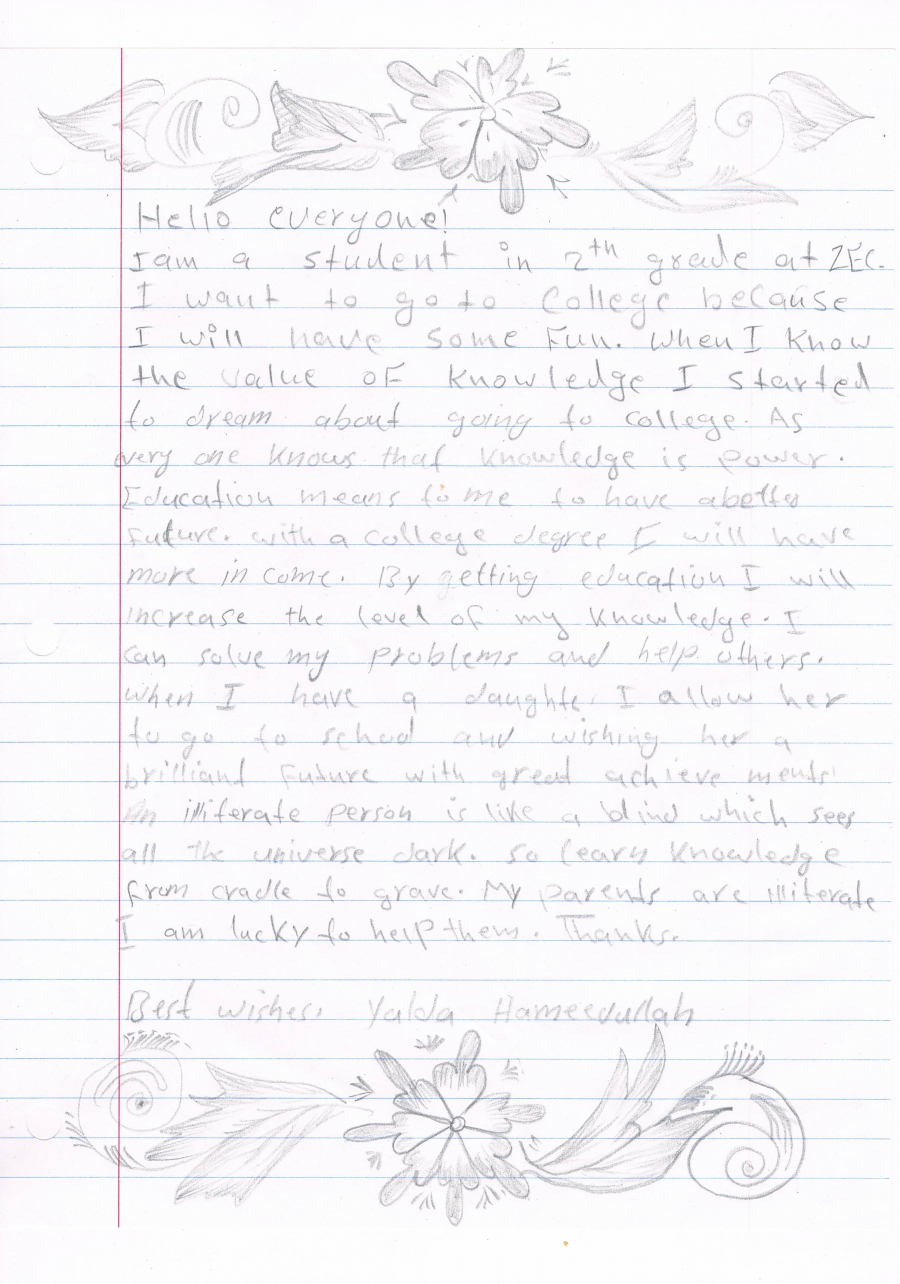 Hello everyone!
I am a student in 2th grade at ZEC.
I want to go to College because
I will have some Fun. When I know
the value of knowledge I started
to dream about going to college. As
every one knows that knowledge is power.
Education means to me to have a better
Future. with a college degree I will have
more in come. By getting education I will
increase the level of my knowledge. I
can solve my problems and help others.
when I have a daughte. I allow her
to go to school and wishing her a
brilliant Future with great achieve ments
An illiterate person is like a blind which sees
all the universe dark. so learn knowledge
from cradle to grave. My parents are illiterate
I am lucky to help them. Thanks.
Best wishes. Yalda Hameedullah